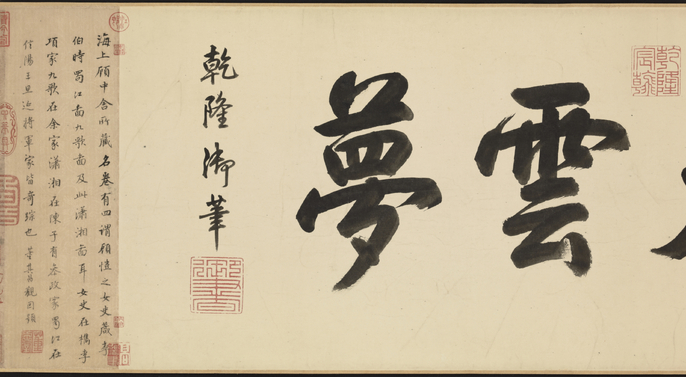 乾隆
宸翰
雲
夢
乾隆御筆
海上顧中舍所藏名卷有四謂顧愷之女史箴李
伯時蜀江圖九歌圖及此瀟湘圖耳女史在檇李
項家九歌在余家瀟湘在陳子有參政家蜀江在
信陽王將軍家皆奇踪也 董其昌觀因題